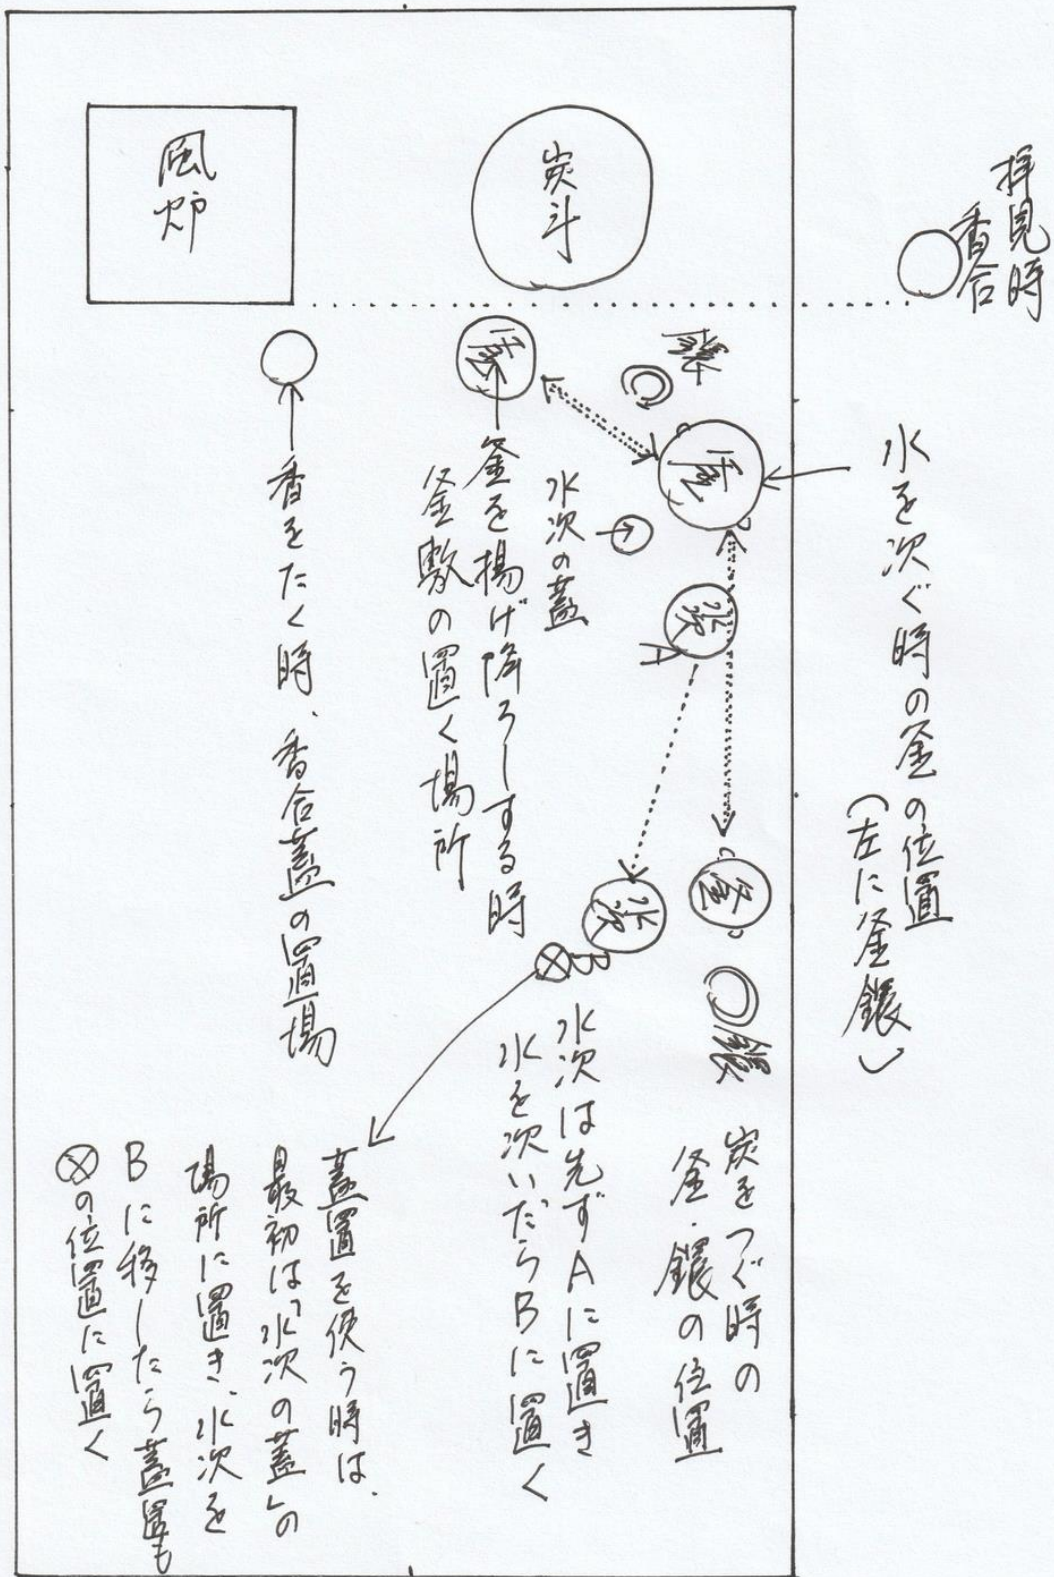 拝見時
香合
水を次ぐ時の釜の位置
(左に釜鐶)
炭斗
風炉
鐶
釜
釜
水次の蓋
水次
A
釜を揚げ降ろしする時
釜敷の置く場所
香をたく時、香合蓋の置場
釜
鐶
炭をつぐ時の
釜・鐶の位置
水次
B
水次は先ずAに置き
水を次いだらBに置く
蓋置を使う時は、
最初は「水次の蓋」の
場所に置き、水次を
Bに移したら蓋置も
⊗の位置に置く